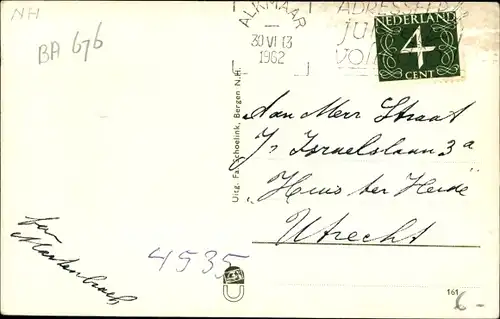 NH
BA 676
ALKMAAR
30 VI 13
1962
ADRESSEER
JU
VOLL
NEDERLAND
4
CENT
Uitg. Fa. Schoelink, Bergen N.H.
Aan Mevr Straat
Js Israelslaan 3a
"Huis ter Heide"
Utrecht
fam
4935
161
6 -